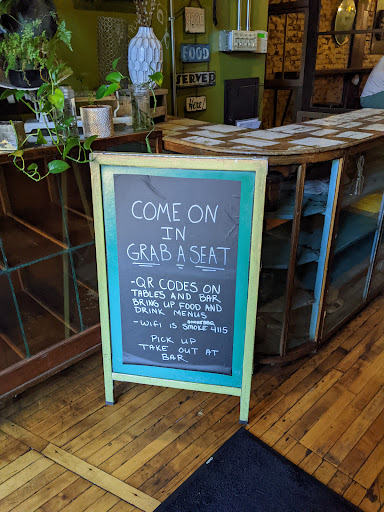 FOOD
SERVED
Here
COME ON
IN
GRAB A SEAT
-QR CODES ON
TABLES AND BAR
BRING UP FOOD AND
DRINK MENUS
-WIFI IS SMOKE 4115
PICK UP
TAKE OUT AT
BAR